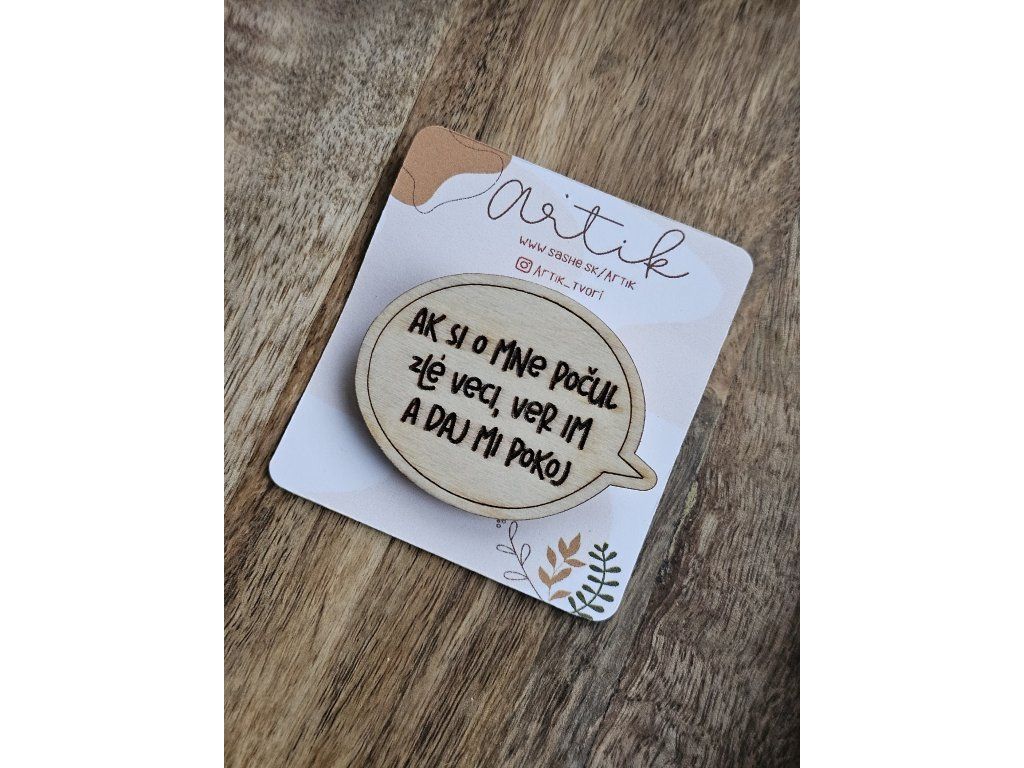 artik
www.sashe.sk/Artik
Artik_tvorí
AK SI O MNE POČUL
ZLÉ VECI, VER IM
A DAJ MI POKOJ